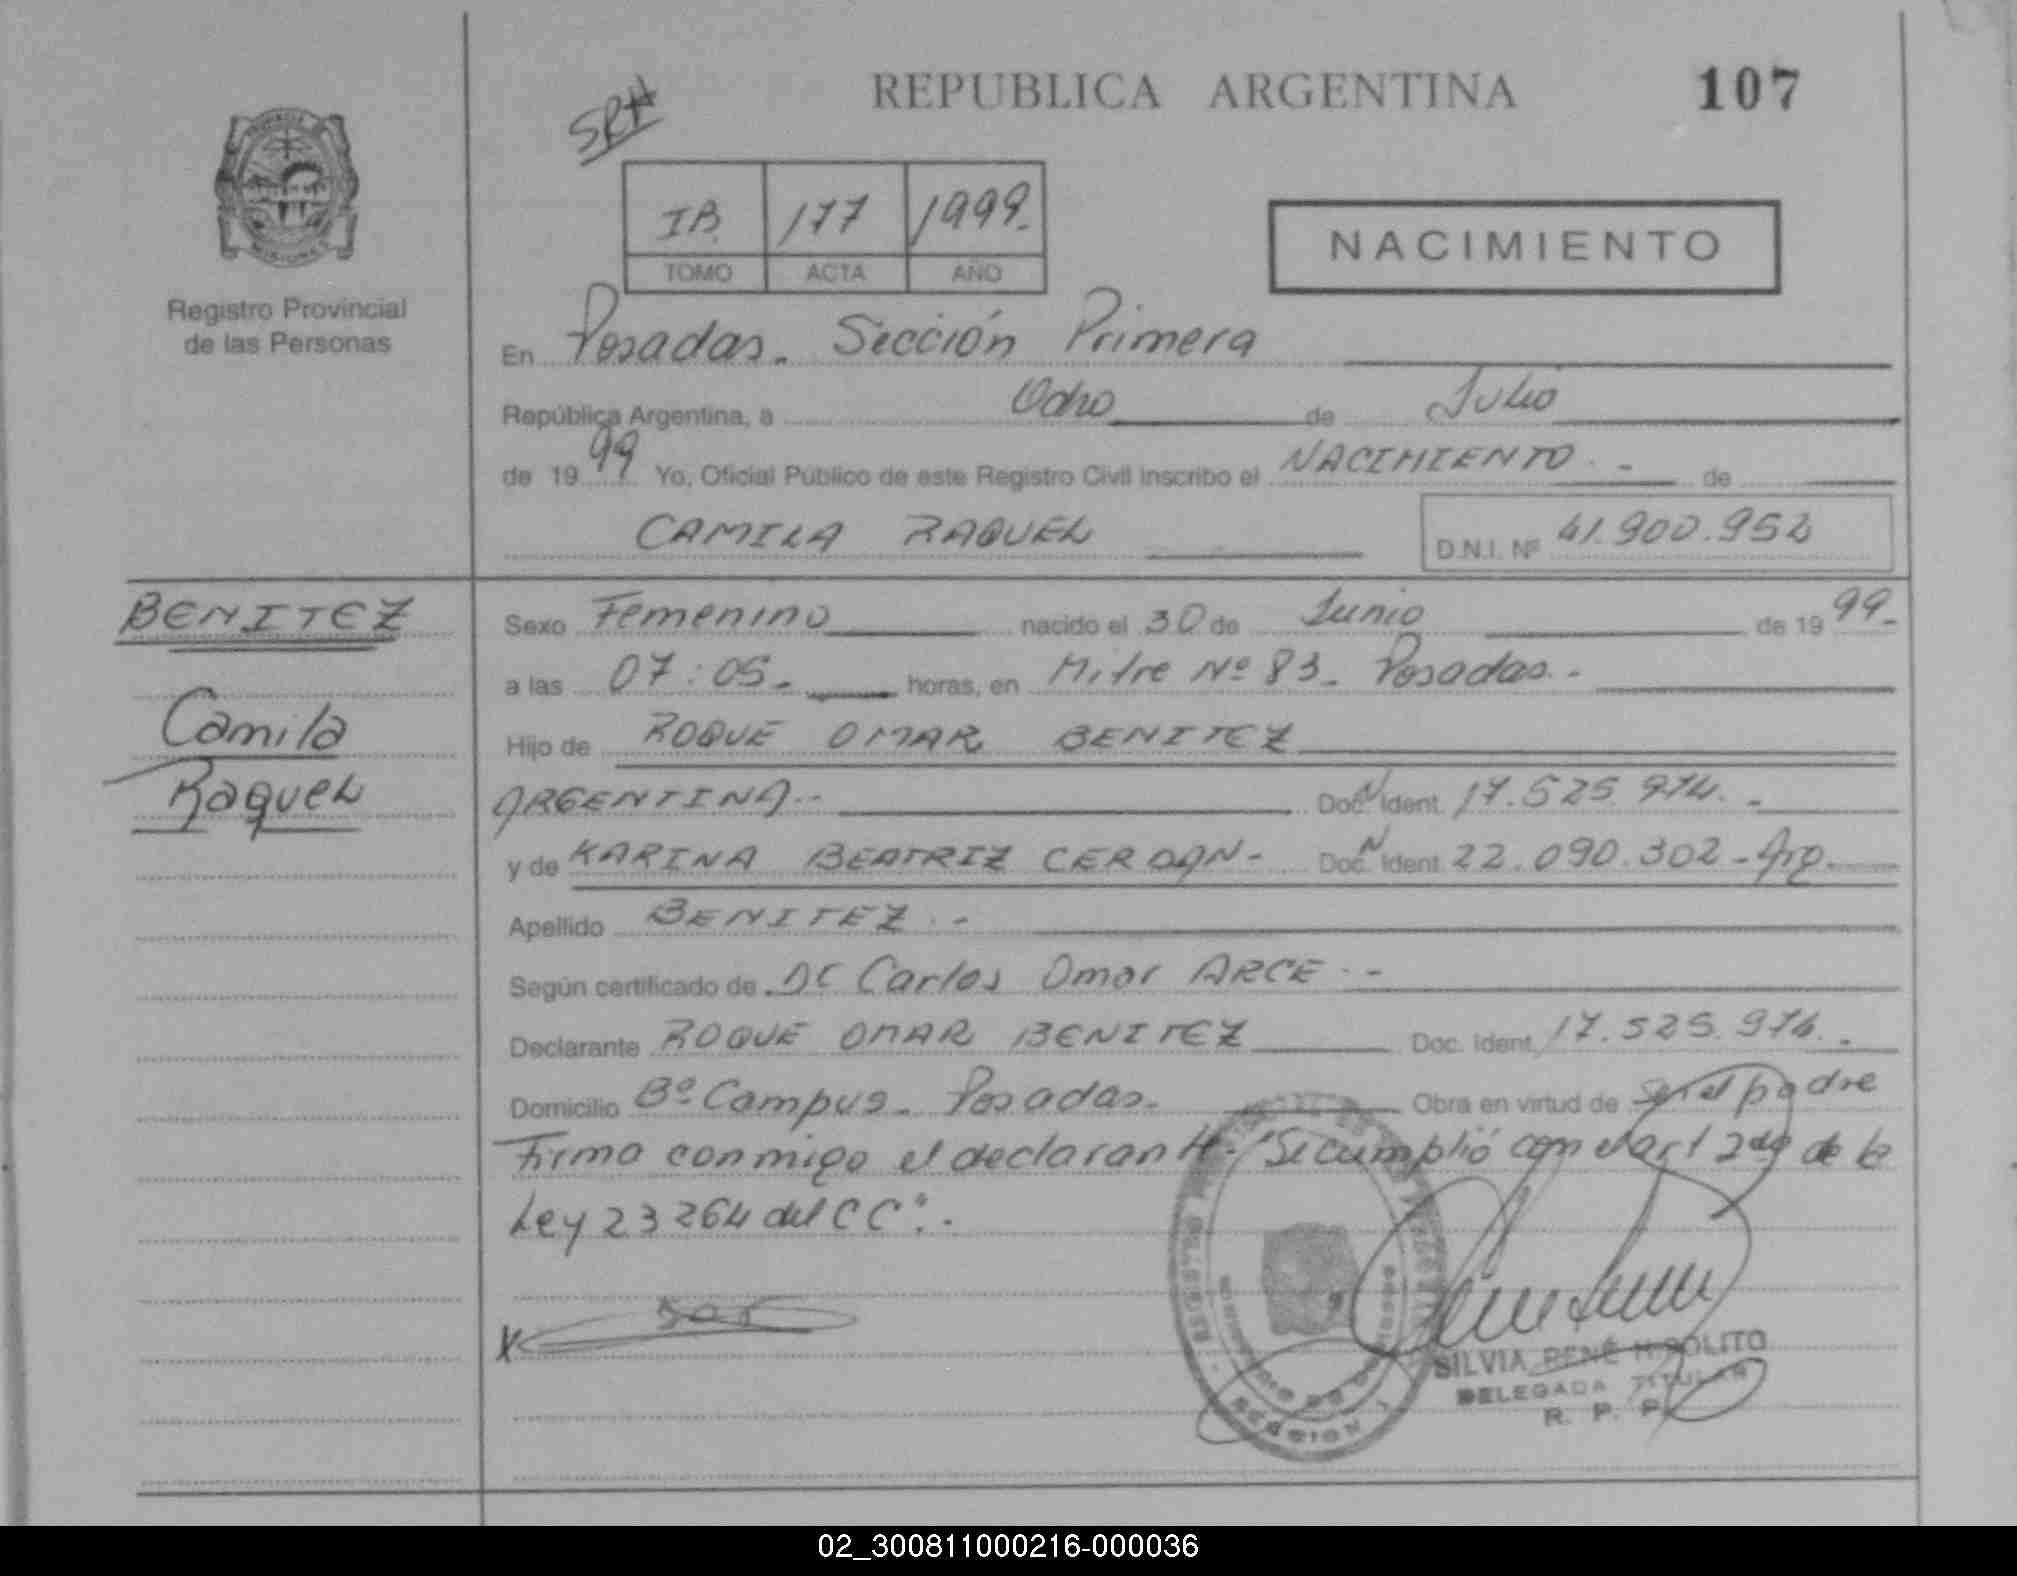 REPUBLICA ARGENTINA 107
SRH
IB. 177 1999.
TOMO ACTA AÑO
NACIMIENTO
Registro Provincial
de las Personas
En Posadas. Sección Primera
República Argentina, a Ocho de Julio
de 1999 Yo, Oficial Público de este Registro Civil inscribo el NACIMIENTO.- de
CAMILA RAQUEL D.N.I. Nº 41.900.952
BENITEZ
Camila
Raquel
Sexo Femenino nacido el 30 de Junio de 1999-
a las 07:05- horas, en Mitre Nº 83- Posadas.-
Hijo de ROQUE OMAR BENITEZ
ARGENTINA.- Doc. N Ident. 17.525.974.-
y de KARINA BEATRIZ CERDAN- Doc. N Ident. 22.090.302-Arg.
Apellido BENITEZ.-
Según certificado de Dr Carlos Omar ARCE.-
Declarante ROQUE OMAR BENITEZ Doc. Ident. 17.525.974.-
Domicilio Bº Campus- Posadas- Obra en virtud de ser el padre
Firma conmigo el declarante. Se cumplió con el art 2do de la
Ley 23264 del CC°.-
X
SILVIA RENÉ HIPOLITO
DELEGADA TITULAR
R. P. P.
02_300811000216-000036